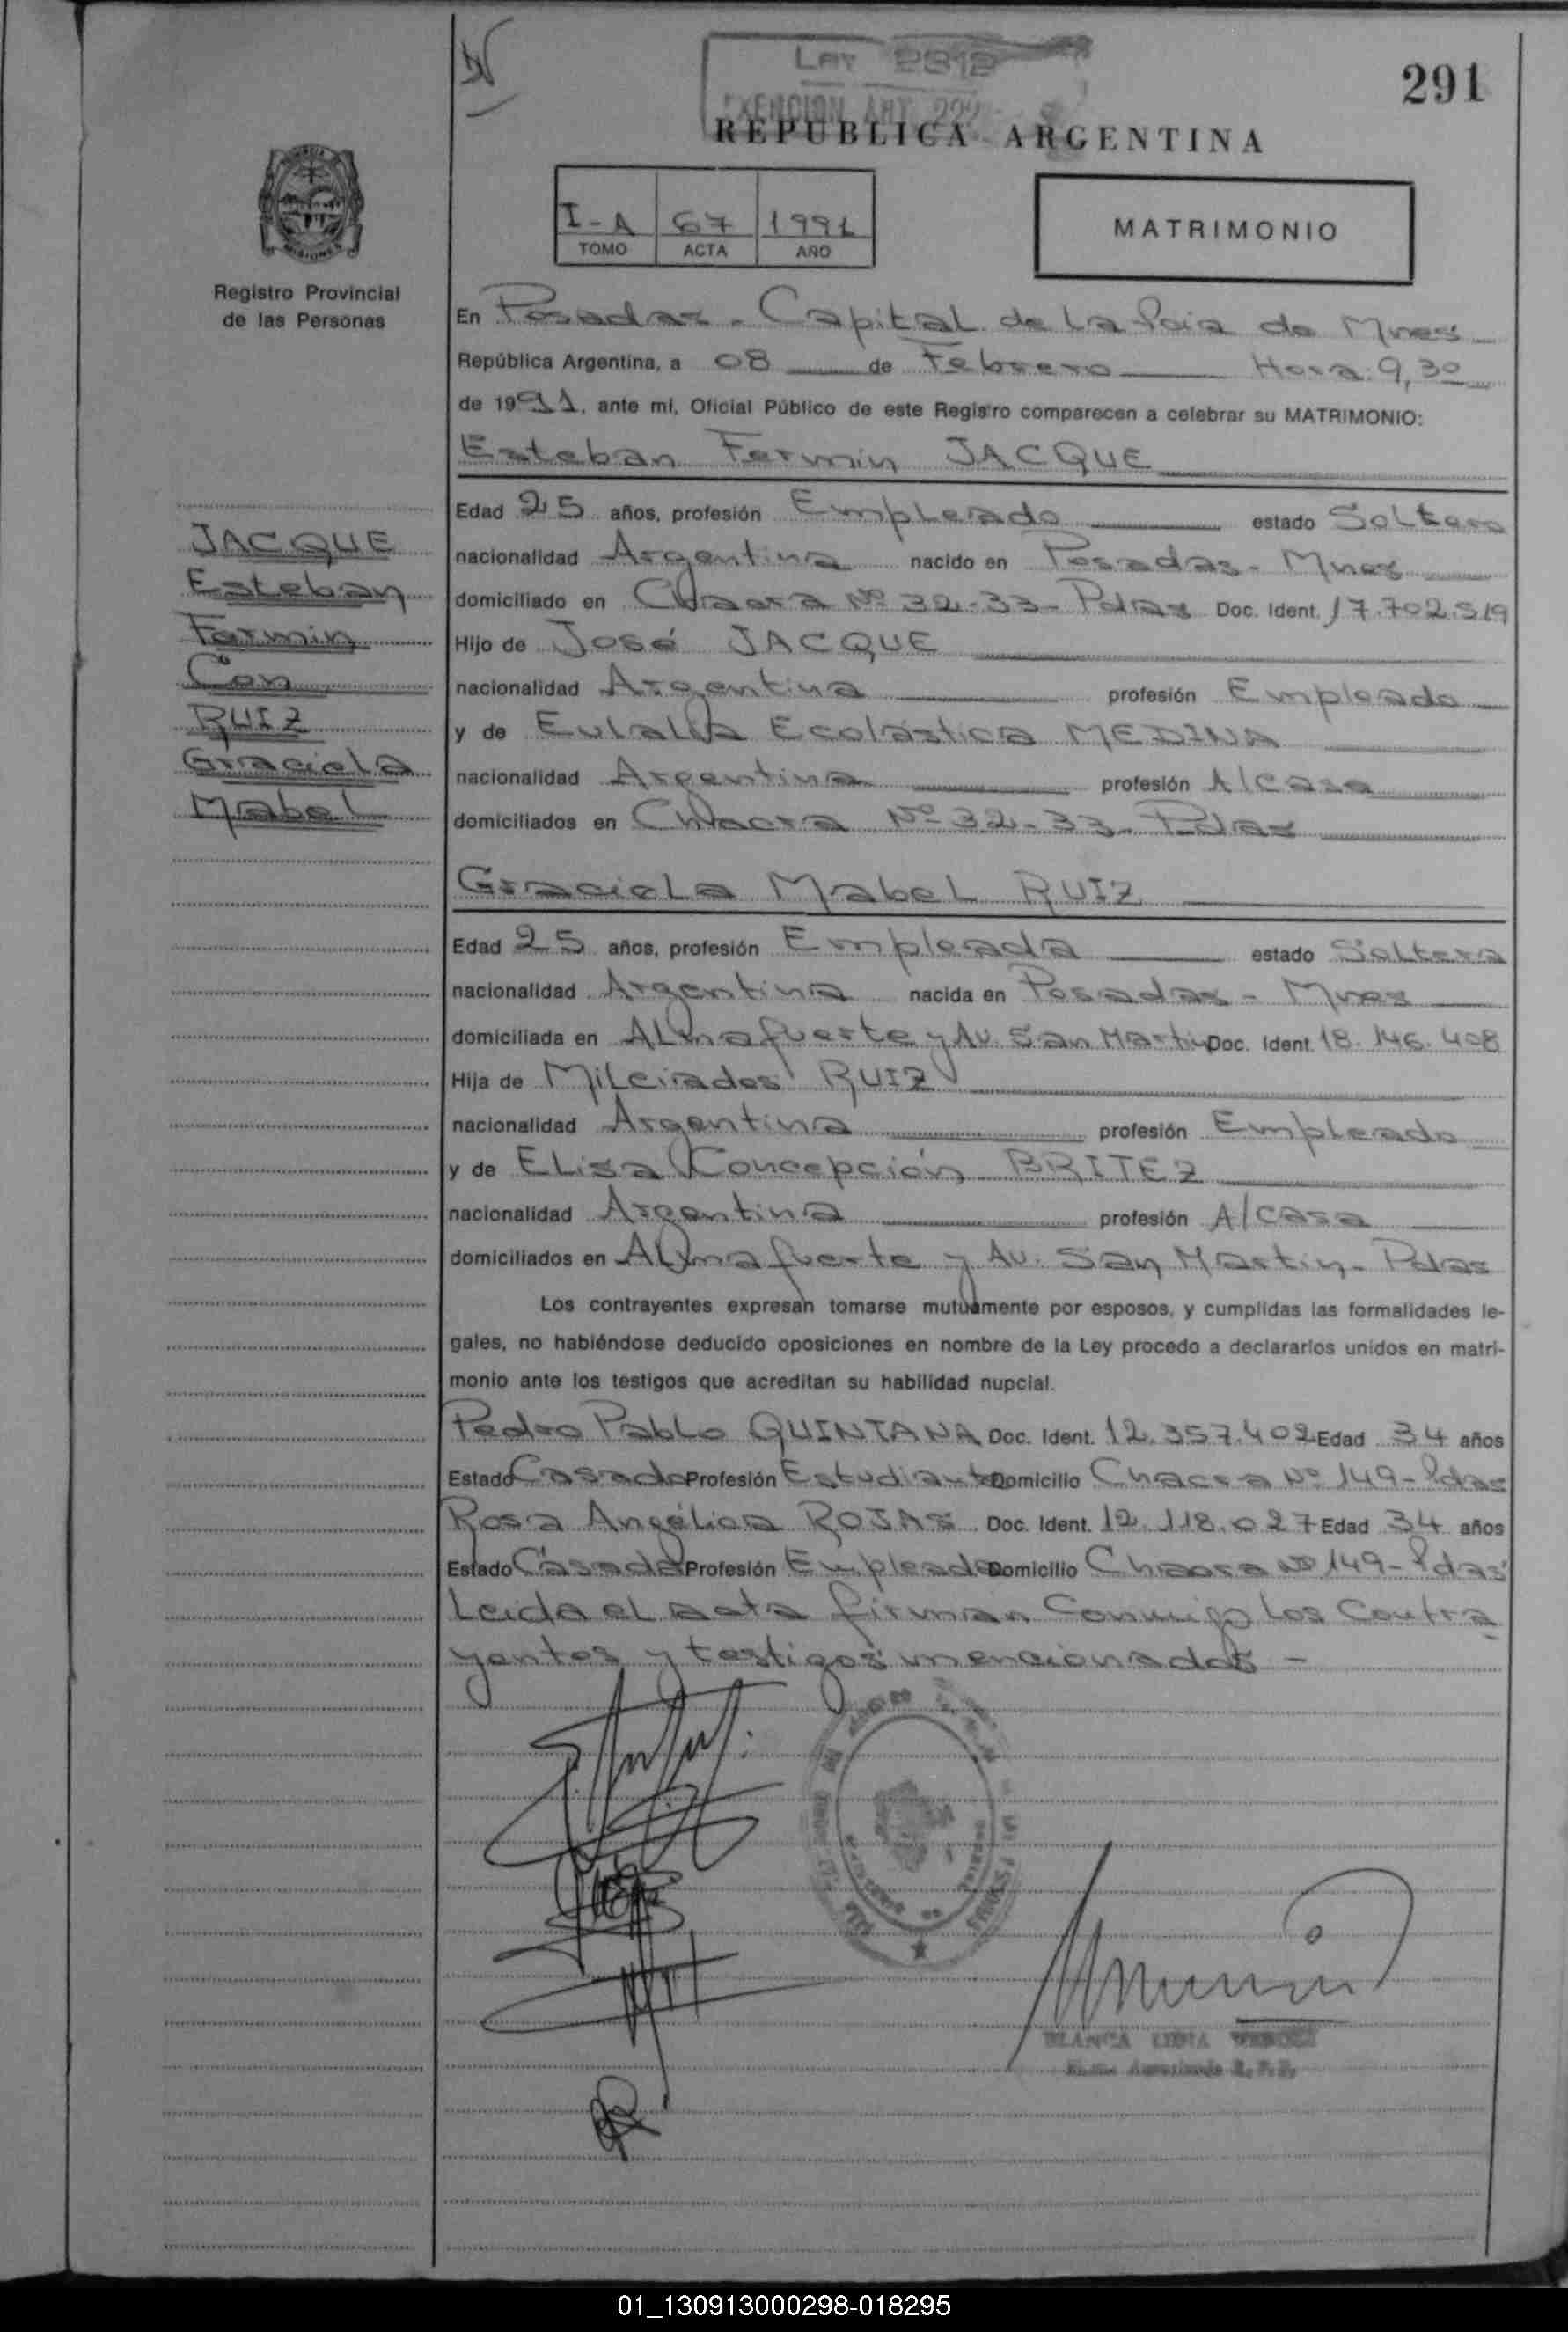 LEY 2312
EXENCION ART. 222
291
REPUBLICA ARGENTINA
I-A 67 1991
TOMO ACTA AÑO
MATRIMONIO
Registro Provincial
de las Personas
En Posadas - Capital de La Pcia de Mnes
República Argentina, a 08 de Febrero Hora: 9,30
de 1991, ante mí, Oficial Público de este Registro comparecen a celebrar su MATRIMONIO:
Esteban Fermin JACQUE
JACQUE
Esteban
Fermin
Con
RUIZ
Graciela
Mabel
Edad 25 años, profesión Empleado estado Soltero
nacionalidad Argentina nacido en Posadas - Mnes
domiciliado en Chacra Nº 32-33- Pdas Doc. Ident. 17.702.519
Hijo de José JACQUE
nacionalidad Argentina profesión Empleado
y de Eulalia Ecolástica MEDINA
nacionalidad Argentina profesión A/casa
domiciliados en Chacra Nº 32-33- Pdas
Graciela Mabel RUIZ
Edad 25 años, profesión Empleada estado Soltera
nacionalidad Argentina nacida en Posadas - Mnes
domiciliada en Almafuerte y Av. San Martin Doc. Ident. 18.146.408
Hija de Milciades RUIZ
nacionalidad Argentina profesión Empleado
y de Elisa Concepción BRITEZ
nacionalidad Argentina profesión A/casa
domiciliados en Almafuerte y Av. San Martin - Pdas
Los contrayentes expresan tomarse mutuamente por esposos, y cumplidas las formalidades le-
gales, no habiéndose deducido oposiciones en nombre de la Ley procedo a declararlos unidos en matri-
monio ante los testigos que acreditan su habilidad nupcial.
Pedro Pablo QUINTANA Doc. Ident. 12.357.402 Edad 34 años
Estado Casado Profesión Estudiante Domicilio Chacra Nº 149- Pdas
Rosa Angélica ROJAS Doc. Ident. 12.118.027 Edad 34 años
Estado Casada Profesión Empleada Domicilio Chacra Nº 149- Pdas
Leida el acta firman Conmigo Los Contra
yentes y testigos mencionados -
BLANCA LIDIA
01_130913000298-018295